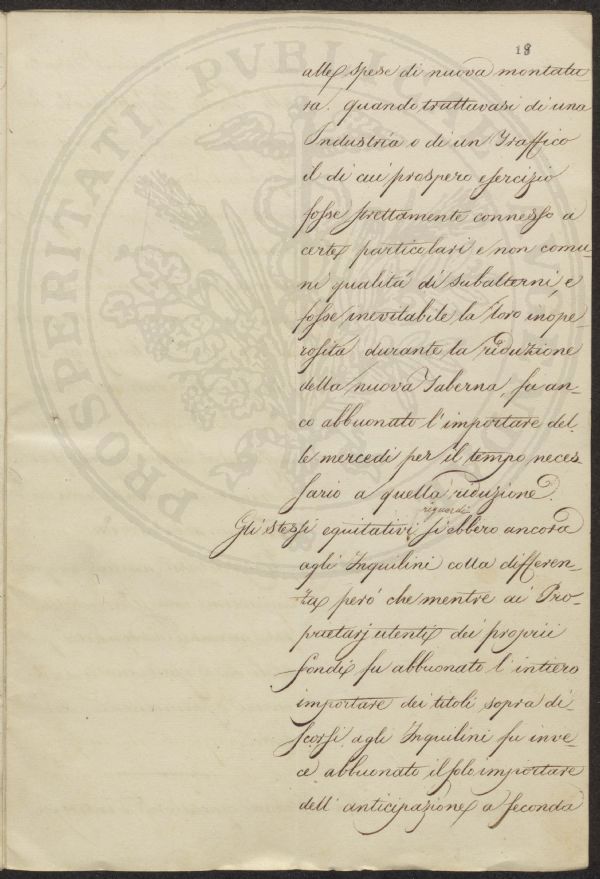 18
alle spese di nuova montatu
ra. quando trattavasi di una
Industria o di un Traffico
il di cui prospero esercizio
fosse strettamente connesso a
certe particolari e non comu-
ni qualità di subalterni, e
fosse inevitabile la loro inope-
rosità durante la riduzione
della nuova Taberna, fu an-
co abbuonato l'importare del-
le mercedi per il tempo neces
sario a quella riduzione.
riguardi
Gli stessi equitativi si ebbero ancora
agli Inquilini colla differen-
za però che mentre ai Pro-
prietarj utenti dei proprii
fondi fu abbuonato l'intiero
importare dei titoli sopra di-
scorsi agli Inquilini fu inve-
ce abbuonato il solo importare
dell'anticipazione a seconda
PROSPERITATI PVBLICAE